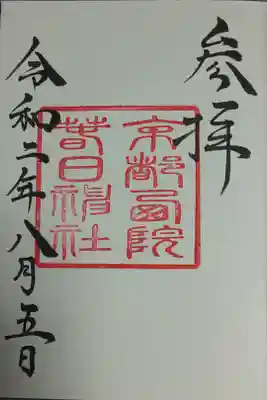 参拝
京都西院
春日神社
令和二年八月五日